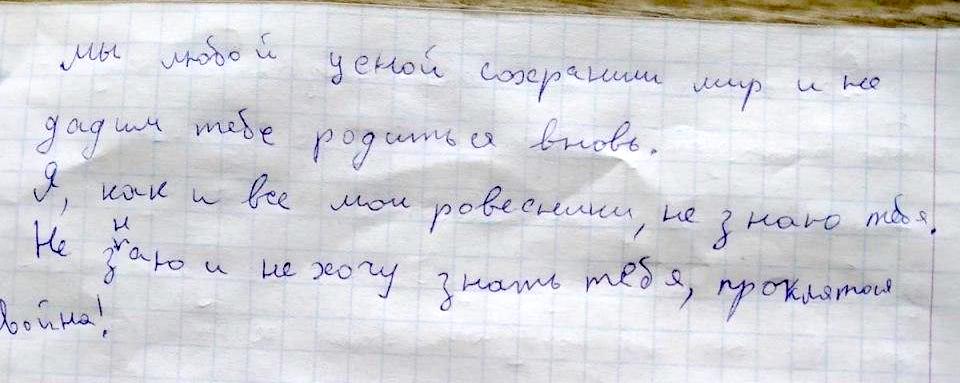 мы любой ценой сохраним мир и не
дадим тебе родиться вновь.
Я, как и все мои ровесники, не знаю тебя.
Не знаю и не хочу знать тебя, проклятая
война!